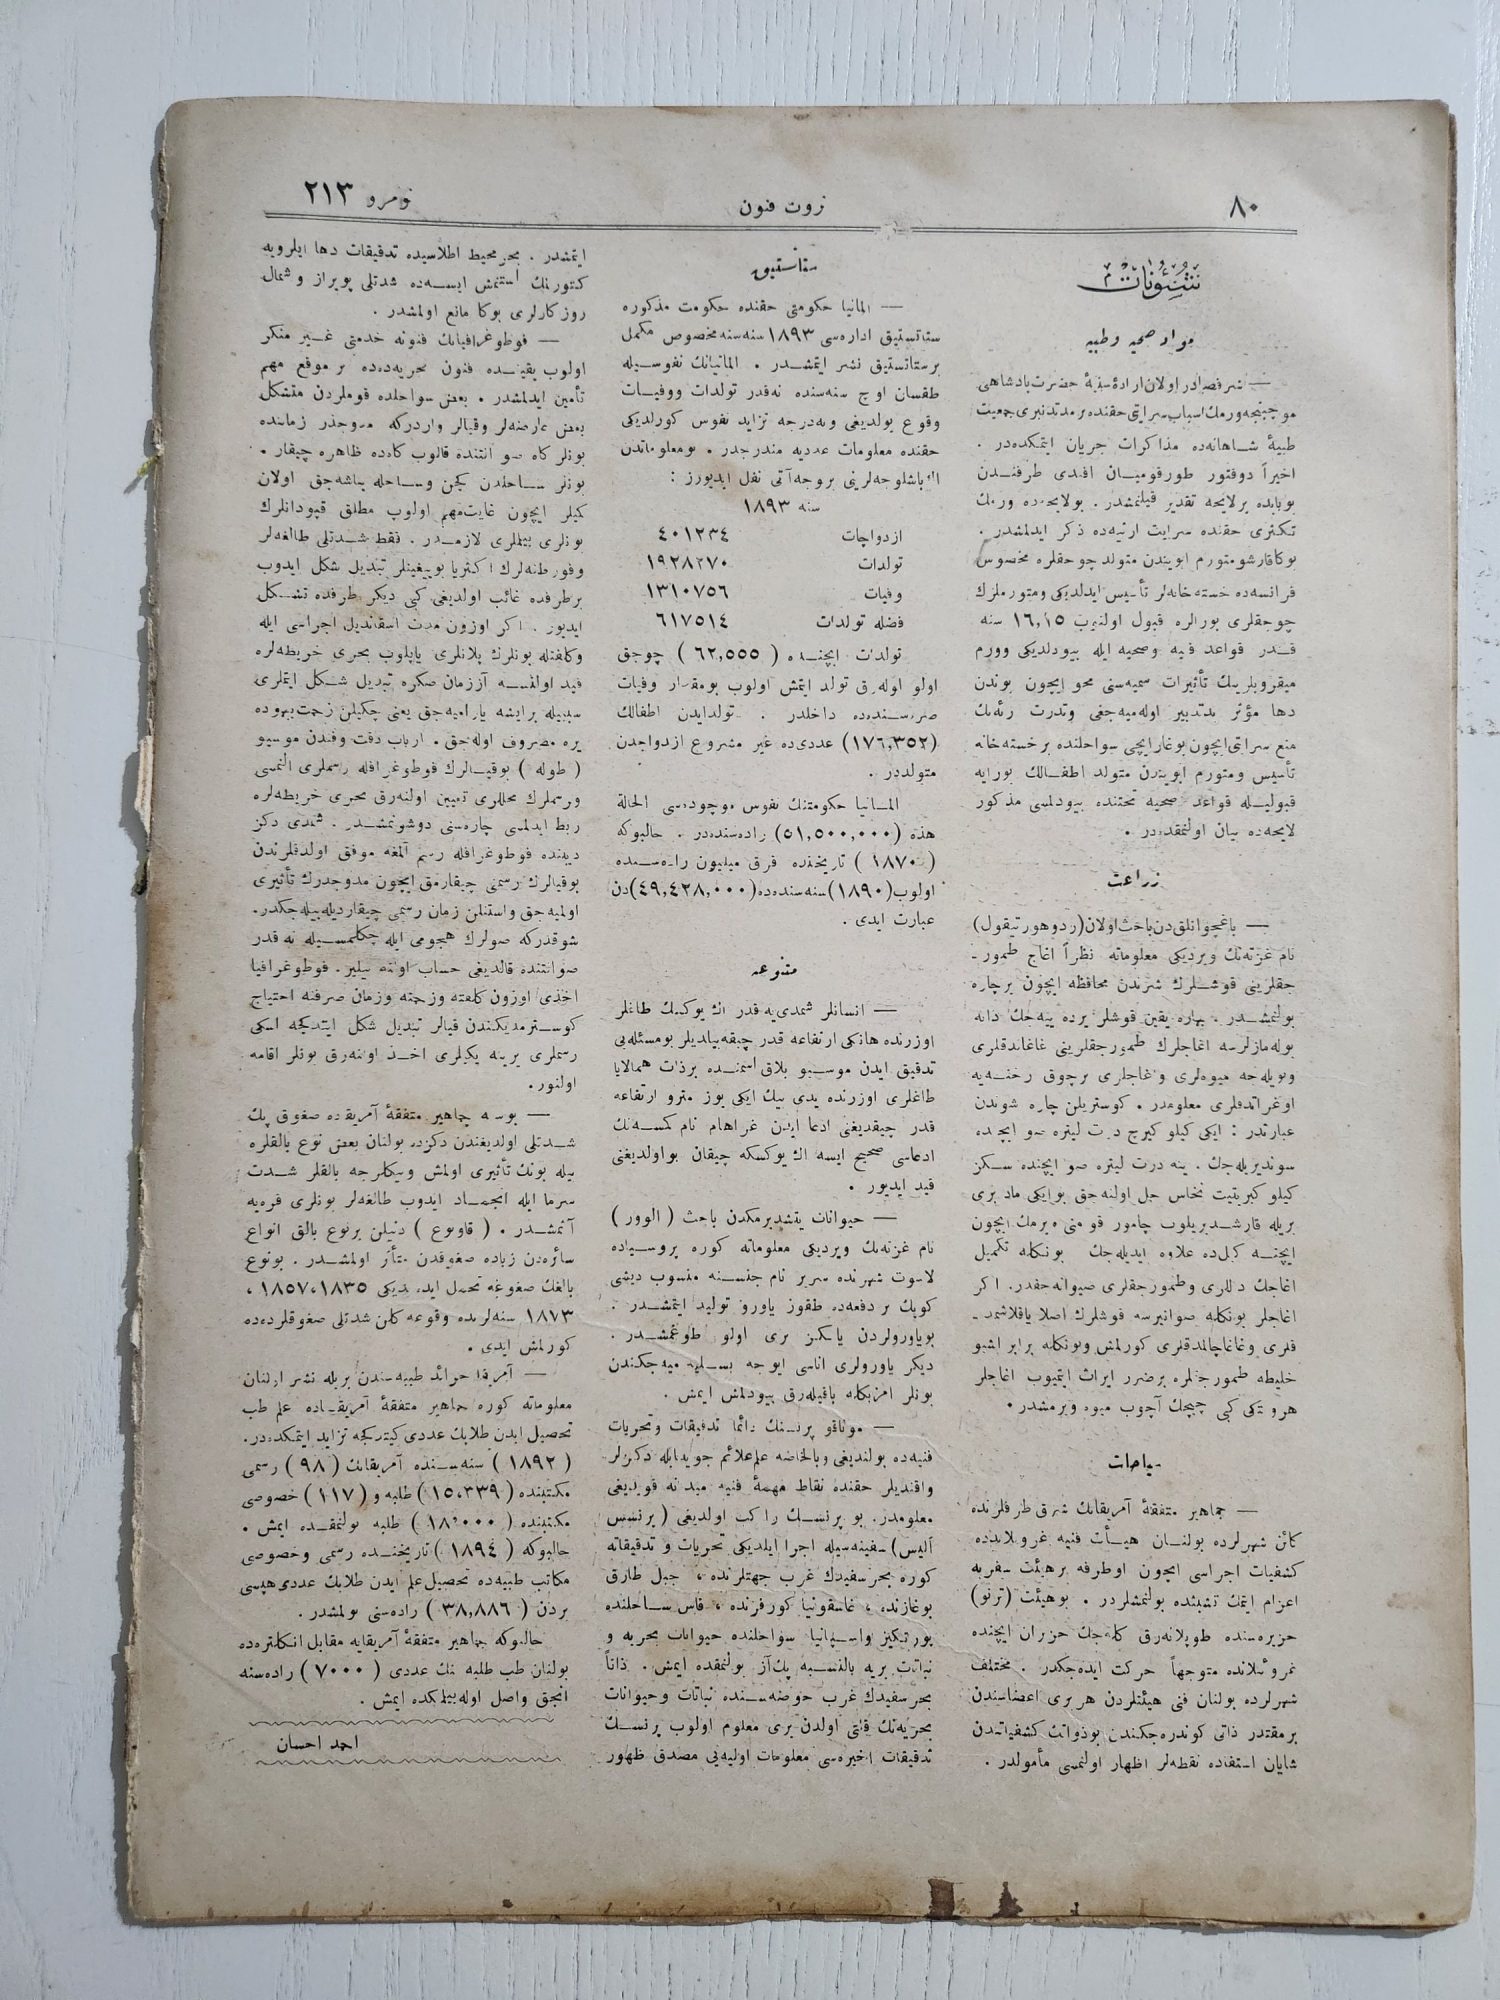 ٨٠
ثروت فنون
نومرو ٢١٣
شئونات
مواد صحیه و طبیه
— شرفصادر اولان ارادهٔ سنیهٔ حضرت پادشاهی
موجبنجه ورمك اسباب سرایتی حقنده برمدتدنبری جمعیت
طبیهٔ شـاهانه‌ده مذاکرات جریان ایتمکده‌در .
اخیراً دوقتور طورقومیـان افندی طرفنـدن
بوبابده برلایحه تقدیر قیلنمشدر . بولایحه‌ده ورمك
تکثری حقنده سرایت ارثیه‌ده ذکر ایدلمشدر .
بوکاقارشو متورم ابویندن متولد چوجقلره مخصوص
فرانسه‌ده خسته‌خانه‌لر تأسیس ایدلدیکی ومتورملرك
چوجقلری بورالره قبول اولنیوب ١٦,١٥ سنه
قـدر قواعد فنیه وصحیه ایله بیودلدیکی وورم
میقروبلرینك تأثیرات سمیه‌سنی محو ایچون بوندن
دها مؤثر برتدبیر اوله‌میه‌جغی وتدرت رئه‌نك
منع سرایتی ایچون بوغازایچی سواحلنده برخسته‌خانه
تأسیس ومتورم ابویندن متولد اطفـالك بورایه
قبولیـله قواعد صحیه تحتنده بیودلمسی مذکور
لایحه‌ده بیان اولنمقده‌در .
زراعت
— باغچوانلق‌دن باحث اولان (ردوهورتیقول)
نام غزته‌نك ویردیکی معلوماته نظراً اغاج طمور-
جقلرینی قوشـلرك شرندن محافظه ایچون برچاره
بولنمشـدر . بهاره یقین قوشلر یرده ییه‌جك دانه
بوله‌مازلرسه اغاجلرك طمورجقلرینی غاغالدقلری
وبویله‌جه میوه‌لری و اغاجلری برچوق رخنـه‌یه
اوغراتدقلری معلومدر . کوستریلن چاره شوندن
عبارتدر : ایکی کیلو کیرج درت لیتره صو ایچنده
سوندیریله‌جك . ینه درت لیتره صو ایچنده سـکز
کیلو کبریتیت نحاس حل اولنه‌جق بوایکی ماده بری
بریله قارشـدیریلوب چامور قوامنی ویرمك ایچون
ایچنـه کیل‌ده علاوه ایدیله‌جك بونکله تکمیل
اغاجك داللری وطمورجقلری صیوانه‌جقدر. اکر
اغاجلر بونکله صوانیرسه قوشلرك اصلا یاقلاشمد-
قلری وغاغاچالمدقلری کورلمش وبونکله برابر اشبو
خلیطه طمورجقلره برضرر ایراث ایتمیوب اغاجلر
هروقتکی کبی چیچك آچوب میوه ویرمشدر.
سیاحات
— جماهیر متفقهٔ آمریقانك شرق طرفلرنده
کائن شهرلرده بولنـان هیـأت فنیه غروئلانده‌ده
کشفیات اجراسی ایچون اوطرفه برهیئت سفریه
اعزام ایتمك تشبثنده بولنمشلردر . بوهیئت (ترنو)
جزیره‌سنده طوپلانه‌رق کله‌جك حزیران ایچنده
غروئنلانده متوجهاً حرکت ایده‌جکدر . مختلف
شهرلرده بولنان فنی هیئتلردن هر بری اعضاسندن
برمقتدر ذاتی کوندره‌جکندن بوذواتك کشفیاتندن
شایان استفاده نقطه‌لر اظهار اولنمسی مأمولدر .
ستاستیق
— المانیا حکومتی حقنده حکومت مذکوره
ستاتستیق اداره‌سی ١٨٩٣ سنه‌سنه مخصوص مکمل
برستاتستیق نشر ایتمشـدر . المانیانك نفوسـیله
طقسان اوچ سنه‌سنده نه‌قدر تولدات ووفیـات
وقوع بولدیغی ونه‌درجه تزاید نفوس کورلدیکی
حقنده معلومات عددیه مندرجدر . بومعلوماتدن
اك باشلوجه‌لرینی بروجه‌آتی نقل ایدیورز :
سنه ١٨٩٣
ازدواجات ٤٠١٢٣٤
تولدات ١٩٢٨٢٧٠
وفیات ١٣١٠٧٥٦
فضله تولدات ٦١٧٥١٤
تولدات ایچنـده ( ٦٢,٥٥٥ ) چوجق
اولو اوله‌رق تولد ایتمش اولوب بومقدار وفیات
صره‌سنده‌ده داخلدر . تولدایدن اطفالك
(١٧٦,٣٥٢) عددی‌ده غیر مشروع ازدواجدن
متولددر .
المـانیا حکومتنك نفوس موجوده‌سی الحالة
هذه (٥١,٥٠٠,٠٠٠) راده‌سنده‌در . حالبوکه
( ١٨٧٠ ) تاریخنده قرق میلیون راده‌سـنده
اولوب (١٨٩٠) سنه‌سنده‌ده (٤٩,٤٢٨,٠٠٠) دن
عبارت ایدی .
متنوعه
— انسانلر شمدی‌یه قدر اك یوکسك طاغلر
اوزرنده هانکی ارتفاعه قدر چیقه‌بیلدیلر بومسئله‌یی
تدقیق ایدن موسیو بلاق اسمنـده برذات همالایا
طاغلری اوزرنده یدی بیك ایکی یوز مترو ارتفاعه
قدر چیقدیغنی ادعا ایدن غراهام نام کمسـه‌نك
ادعاسی صحیح ایسه اك یوکسکه چیقان بواولدیغنی
قید ایدیور .
— حیوانات یتشدیرمکدن باحث ( الوور )
نام غزته‌نك ویردیکی معلوماته کوره پروسـیاده
لاسوت شهرنده سربر نام جنسـنه منسوب دیشی
کوپك بر دفعه‌ده طقوز یاورو تولید ایتمشـدر .
بویاورولردن یالکز بری اولو طوغمشـدر .
دیکر یاورولری اناسی ایوجه بسـلیه‌میه‌جکندن
بونلر امزیکله باقیله‌رق بیودلمش ایمش .
— موناقو پرنسنك دائما تدقیقات وتحریات
فنیه‌ده بولندیغی وبالخاصه علم علائم جویه‌ایله دکزلر
واقندیلر حقنده نقاط مهمهٔ فنیه میدانه قویدیغی
معلومدر. بو پرنسـك راکب اولدیغی ( پرنسس
آلیس) سفینه‌سیله اجرا ایلدیکی تحریات و تدقیقاته
کوره بحرسفیدك غرب جهتلرنده ، جبل طارق
بوغازنده ، غاسقونیا کورفزنده ، فاس سـاحلنده
پورتکیز واسپانیا سواحلنده حیوانات بحریه و
نباتات بریه بالنسـبه پك‌آز بولنمقده ایمش . ذاتاً
بحرسفیدك غرب حوضه‌سـنده نباتات وحیوانات
بحریه‌نك قلتی اولدن بری معلوم اولوب پرنسـك
تدقیقات اخیره‌سی معلومات اولیه‌یی مصدق ظهور
ایتمشدر . بحر محیط اطلاسیده تدقیقات دها ایلرویه
کتورلمك استنلمش ایسـه‌ده شدتلی پویراز و شمال
روزکارلری بوکا مانع اولمشدر .
— فوطوغرافیانك فنونه خدمتی غـیر منکر
اولوب یقینـده فنون بحریه‌ده‌ده بر موقع مهم
تأمین ایدلمشدر . بعض سواحلده قوملردن متشکل
بعض عارضه‌لر وقیالر واردرکه مدوجذر زماننده
بونلر کاه صو التنده قالوب کاه‌ده ظاهره چیقار .
بونلر سـاحلدن کچن وسـاحله یناشه‌جق اولان
کمیلر ایچون غایت‌مهم اولوب مطلق قپودانلرك
بونلری بیلملری لازمـدر . فقط شـدتلی طالغه‌لر
وفورطنه‌لرك اکثریا بوییغینلر تبدیل شکل ایدوب
برطرفده غائب اولدیغی کبی دیکر طرفده تشـکل
ایدیور . اکر اوزون مدت اسقاندیل اجراسی ایله
وکلفتله بونلرك پلانلری یاپیلوب بحری خریطه‌لره
قید اولنسـه آززمان صکره تبدیل شـکل ایتملری
سببیله برایشه یارامیه‌جق یعنی چکیلن زحمت بیهوده
یره مصروف اوله‌جق . ارباب دقت وفندن موسیو
( طوله ) بوقیـالرك فوطوغرافله رسملری آلنمسی
ورسملرك محللری تعیین اولنه‌رق بحری خریطه‌لره
ربط ایدلمسی چاره‌سنی دوشونمشـدر . شمدی دکز
دیبنده فوطوغرافله رسم آلمغه موفق اولدقلرندن
بوقیالرك رسمنی چیقارمق ایچون مدوجذرك تأثیری
اولمیه‌جق واستنلن زمان رسمی چیقاردیله‌بیله‌جکدر.
شوقدرکه صولرك هجومی ایله چکلمسـیله نه قدر
صوالتنده قالدیغی حساب اولنه بیلیر. فوطوغرافیا
اخذی اوزون کلفته وزحمته وزمان صرفنه احتیاج
کوسـترمدیکندن قیالر تبدیل شکل ایتدیکجه اسکی
رسملری یرینه یکیلری اخـذ اولنه‌رق بونلر اقامه
اولنور.
— بوسنه جماهیر متفقهٔ آمریقه‌ده صغوق پك
شـدتلی اولدیغندن دکزده بولنان بعض نوع بالقلره
بیله بونك تأثیری اولمش وبیکلرجه بالقلر شـدت
سرما ایله انجمـاد ایدوب طالغه‌لر بونلری قره‌یه
آتمشـدر . ( قاونوع ) دنیلن برنوع بالق انواع
سائره‌دن زیاده صغوقدن متأثر اولمشـدر . بونوع
بالغك صغوغه تحمل ایده‌مدیکی ١٨٣٥،١٨٥٧ ،
١٨٧٣ سنه‌لرنده وقوعه کلن شدتلی صغوقلرده‌ده
کورلمش ایدی .
— آمریقا جرائد طبیه‌سندن بریله نشر اولنان
معلوماته کوره جماهیر متفقهٔ آمریقـاده علم طب
تحصیل ایدن طلابك عددی کیتدکجه تزاید ایتمکده‌در.
( ١٨٩٢ ) سنه‌سـنده آمریقانك ( ٩٨ ) رسمی
مکتبنده ( ١٥,٣٣٩ ) طلبه و ( ١١٧ ) خصوصی
مکتبنده ( ١٨,٠٠٠ ) طلبه بولنمقـده ایمش .
حالبوکه ( ١٨٩٤ ) تاریخنـده رسمی وخصوصی
مکاتب طبیه‌ده تحصیل علم ایدن طلابك عددی هپسی
بردن ( ٣٨,٨٨٦ ) راده‌سنی بولمشدر.
حالبوکه جماهیر متفقهٔ آمریقایه مقابل انکلتره‌ده
بولنان طب طلبه‌سنك عددی ( ٧٠٠٠ ) راده‌سنه
انجق واصل اوله‌بیلمکده ایمش .
احمد احسان